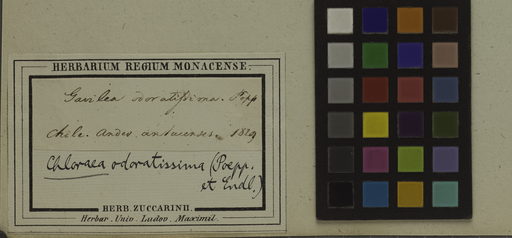 HERBARIUM REGIUM MONACENSE.
Gavilea odoratissima. Pöpp
Chile. Andes. antucenses. 1829
Chloraea odoratissima (Poepp.
et Endl.)
HERB. ZUCCARINII.
Herbar. Univ. Ludov. Maximil.